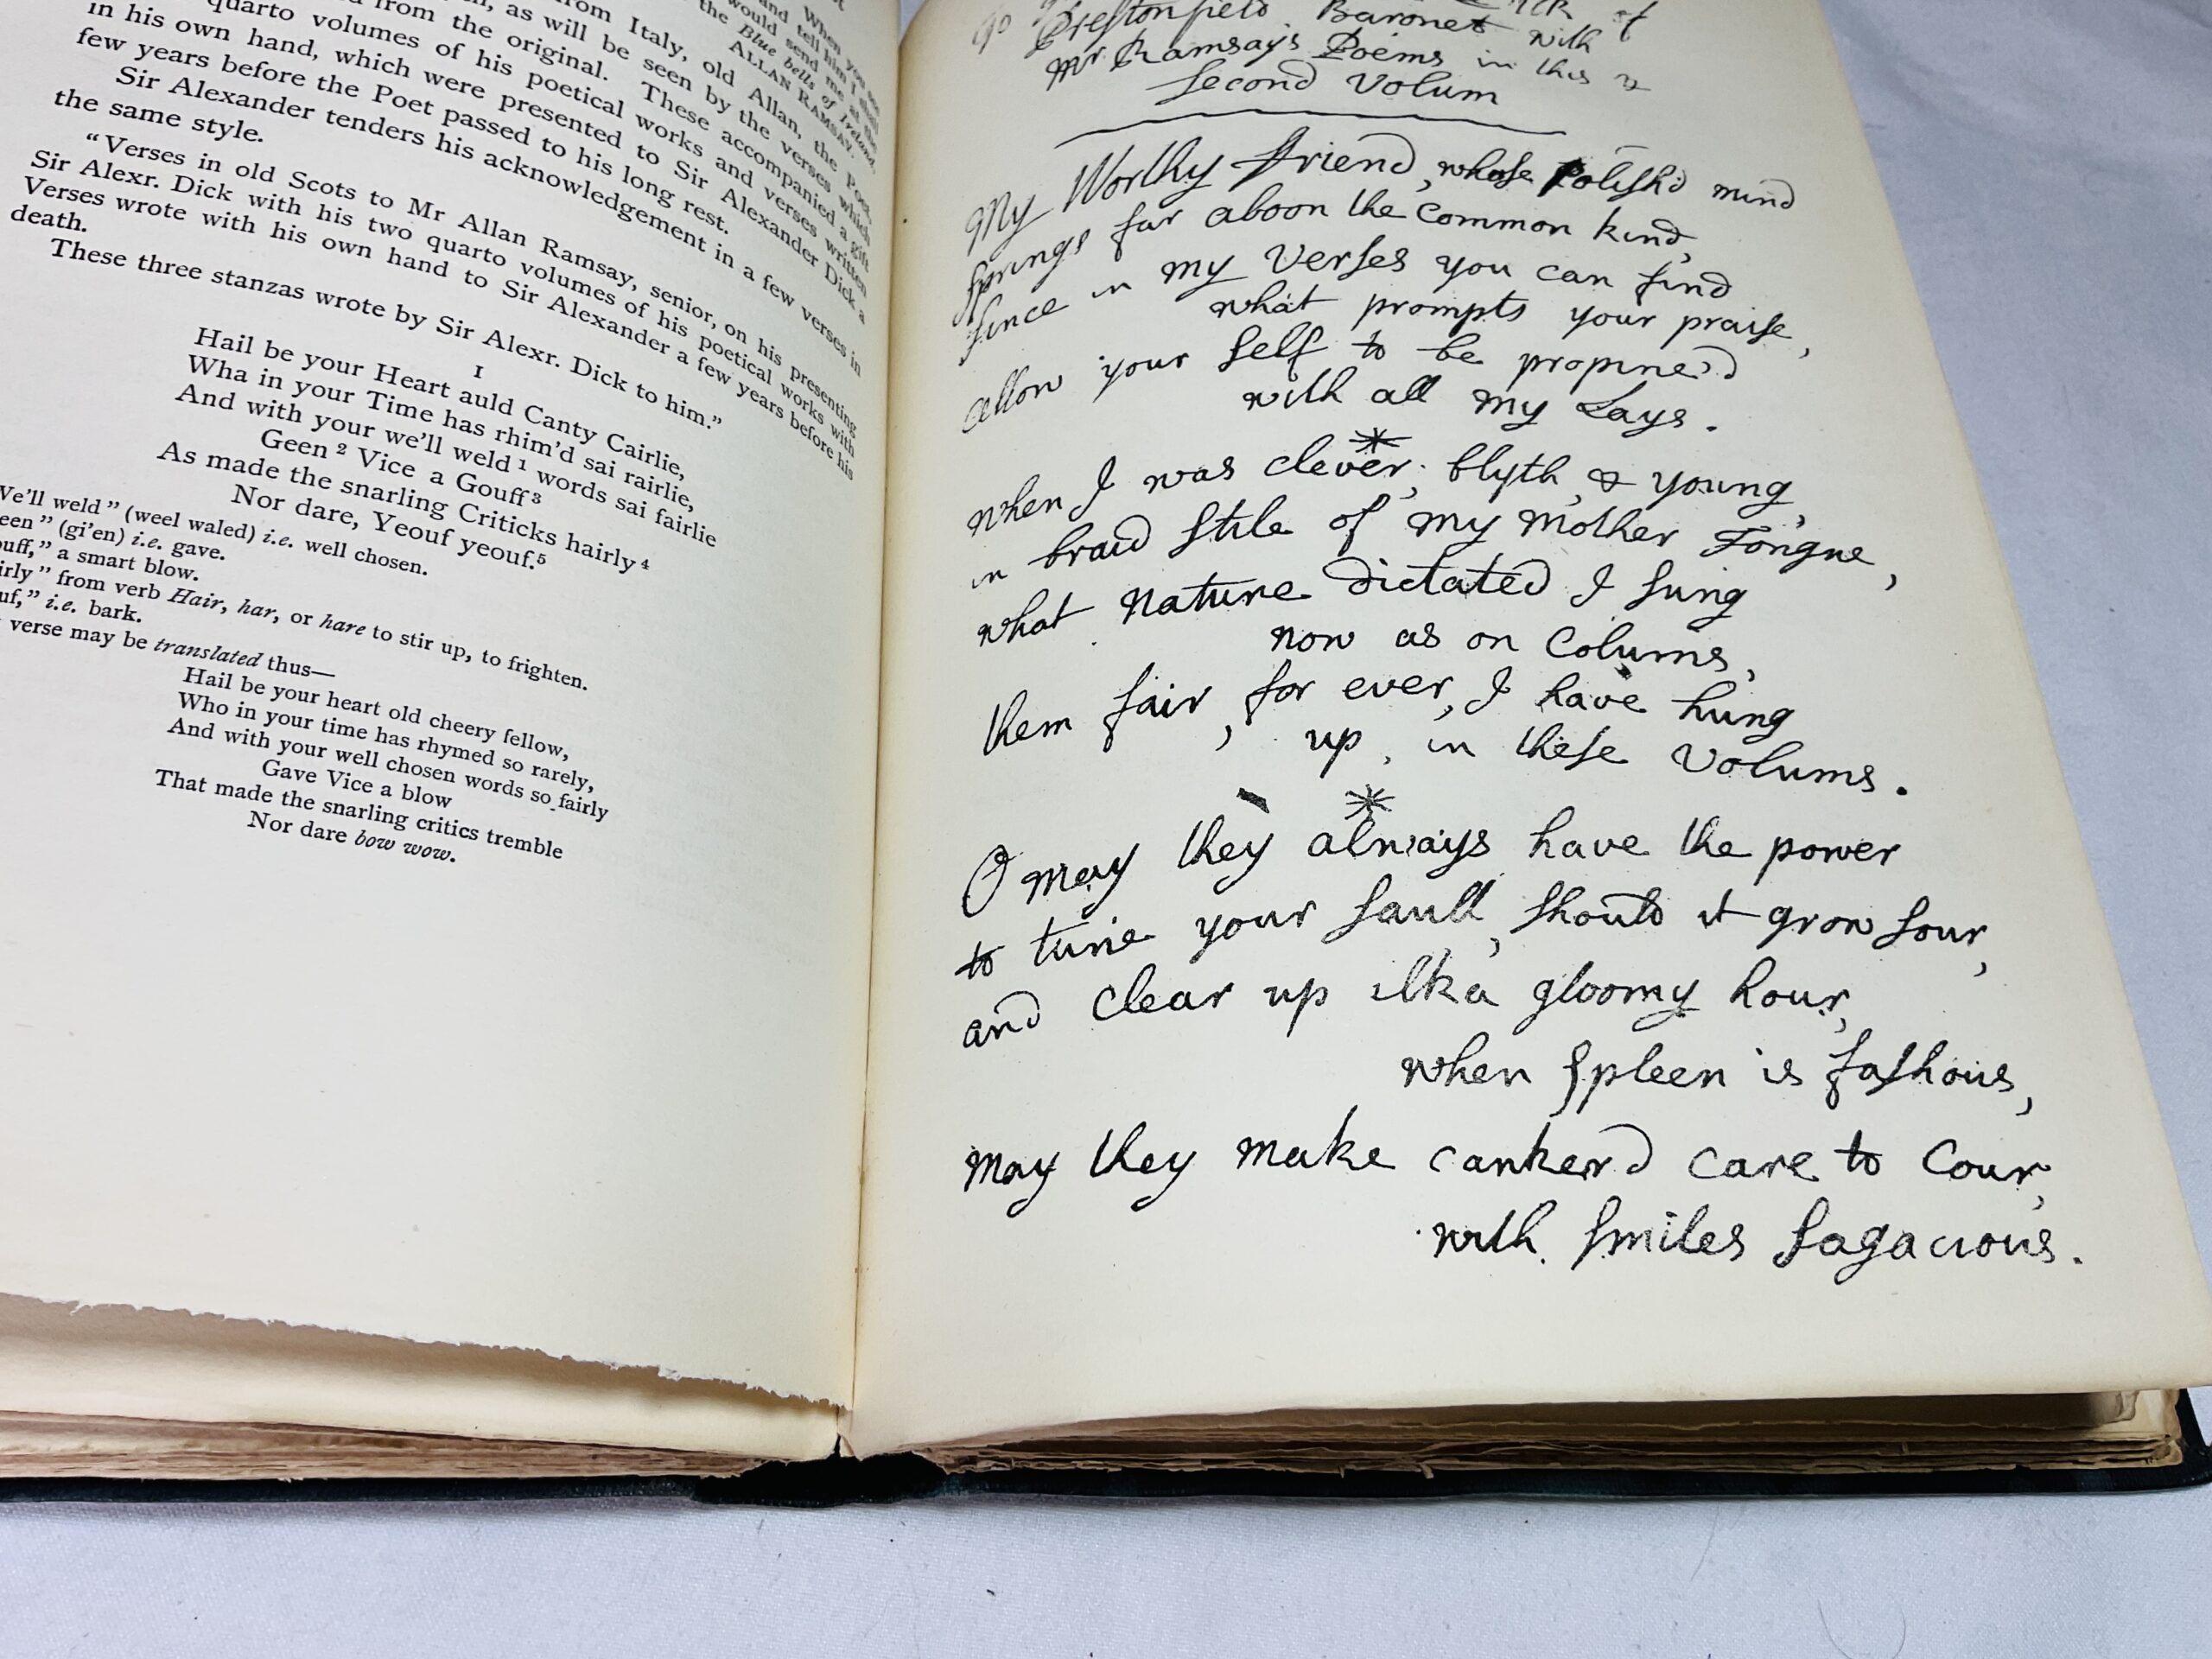 When you
and tell him I shall
would send me at the
the Blue bells of Ireland,
ALLAN RAMSAY.
from Italy, old Allan, the Poet,
as will be seen by the verses which
from the original. These accompanied a gift
quarto volumes of his poetical works and verses written
in his own hand, which were presented to Sir Alexander Dick a
few years before the Poet passed to his long rest.
Sir Alexander tenders his acknowledgement in a few verses in
the same style.
“Verses in old Scots to Mr Allan Ramsay, senior, on his presenting
Sir Alexr. Dick with his two quarto volumes of his poetical works with
Verses wrote with his own hand to Sir Alexander a few years before his
death.
These three stanzas wrote by Sir Alexr. Dick to him.”
I
Hail be your Heart auld Canty Cairlie,
Wha in your Time has rhim’d sai rairlie,
And with your we’ll weld ¹ words sai fairlie
Geen ² Vice a Gouff ³
As made the snarling Criticks hairly ⁴
Nor dare, Yeouf yeouf.⁵
We’ll weld” (weel waled) i.e. well chosen.
een” (gi’en) i.e. gave.
ouff,” a smart blow.
irly” from verb Hair, har, or hare to stir up, to frighten.
uf,” i.e. bark.
verse may be translated thus—
Hail be your heart old cheery fellow,
Who in your time has rhymed so rarely,
And with your well chosen words so fairly
Gave Vice a blow
That made the snarling critics tremble
Nor dare bow wow.
of
Prestonfield Baronet with
Mr Ramsays Poems in this
Second Volum
My Worthy friend, whose Polish'd mind
springs far aboon the Common kind,
since in my Verses you can find
what prompts your praise,
allow your self to be propine'd
with all my Lays.
*
when I was clever, blyth, & young,
in braid stile of my Mother Tongue,
what Nature dictated I sung
now as on Colums,
them fair, for ever, I have hung
up, in these Volums.
*
O may they always have the power
to tune your saull, should it grow sour,
and clear up ilka gloomy hour,
when spleen is fashous,
may they make canker'd care to Cour,
with smiles sagacious.